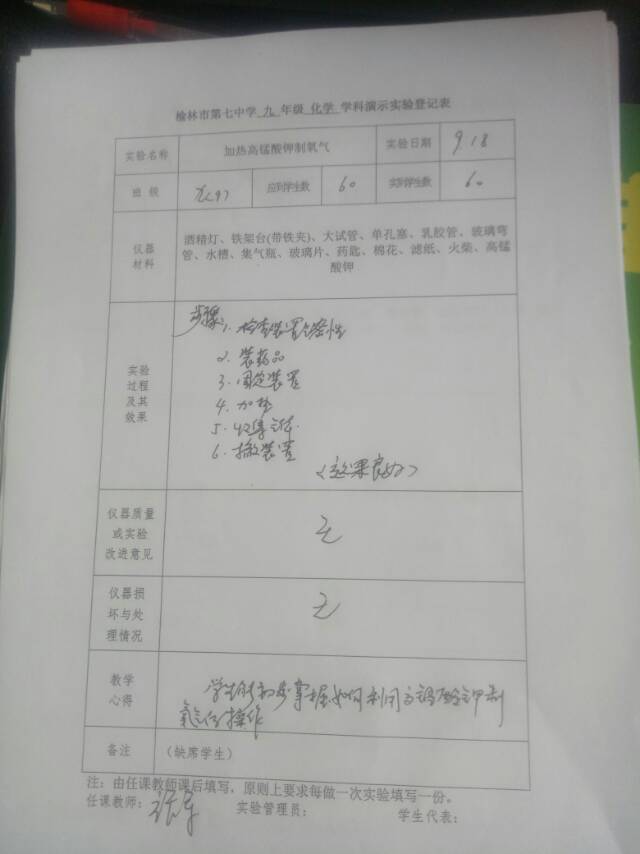 榆林市第七中学 九 年级 化学 学科演示实验登记表
实验名称 加热高锰酸钾制氧气 实验日期 9.18
班 级 应到学生数 60 实到学生数 60
仪器
材料
酒精灯、铁架台(带铁夹)、大试管、单孔塞、乳胶管、玻璃弯
管、水槽、集气瓶、玻璃片、药匙、棉花、滤纸、火柴、高锰
酸钾
实验
过程
及其
效果
步骤:1. 检查装置气密性
2. 装药品
3. 固定装置
4. 加热
5. 收集气体
6. 撤装置
(效果良好)
仪器质量
或实验
改进意见
无
仪器损
坏与处
理情况
无
教学
心得
学生能初步掌握如何利用高锰酸钾制
氧气的操作
备注 (缺席学生)
注：由任课教师课后填写，原则上要求每做一次实验填写一份。
任课教师: 实验管理员: 学生代表: